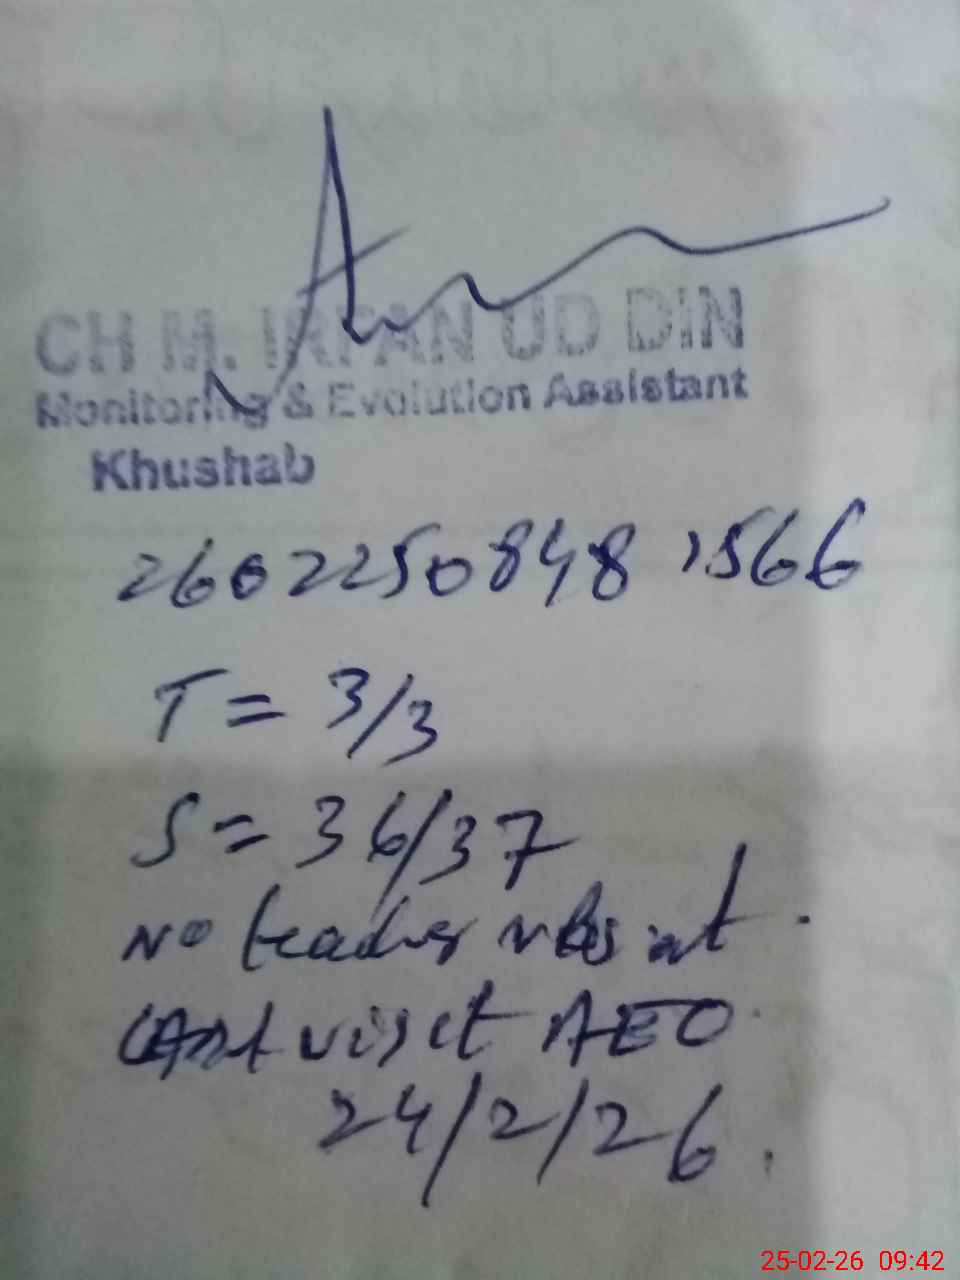 CH M. IRFAN UD DIN
Monitoring & Evolution Assistant
Khushab
2602250848 1566
T = 3/3
S = 36/37
No teacher absent.
Last visit AEO.
24/2/26.
25-02-26 09:42